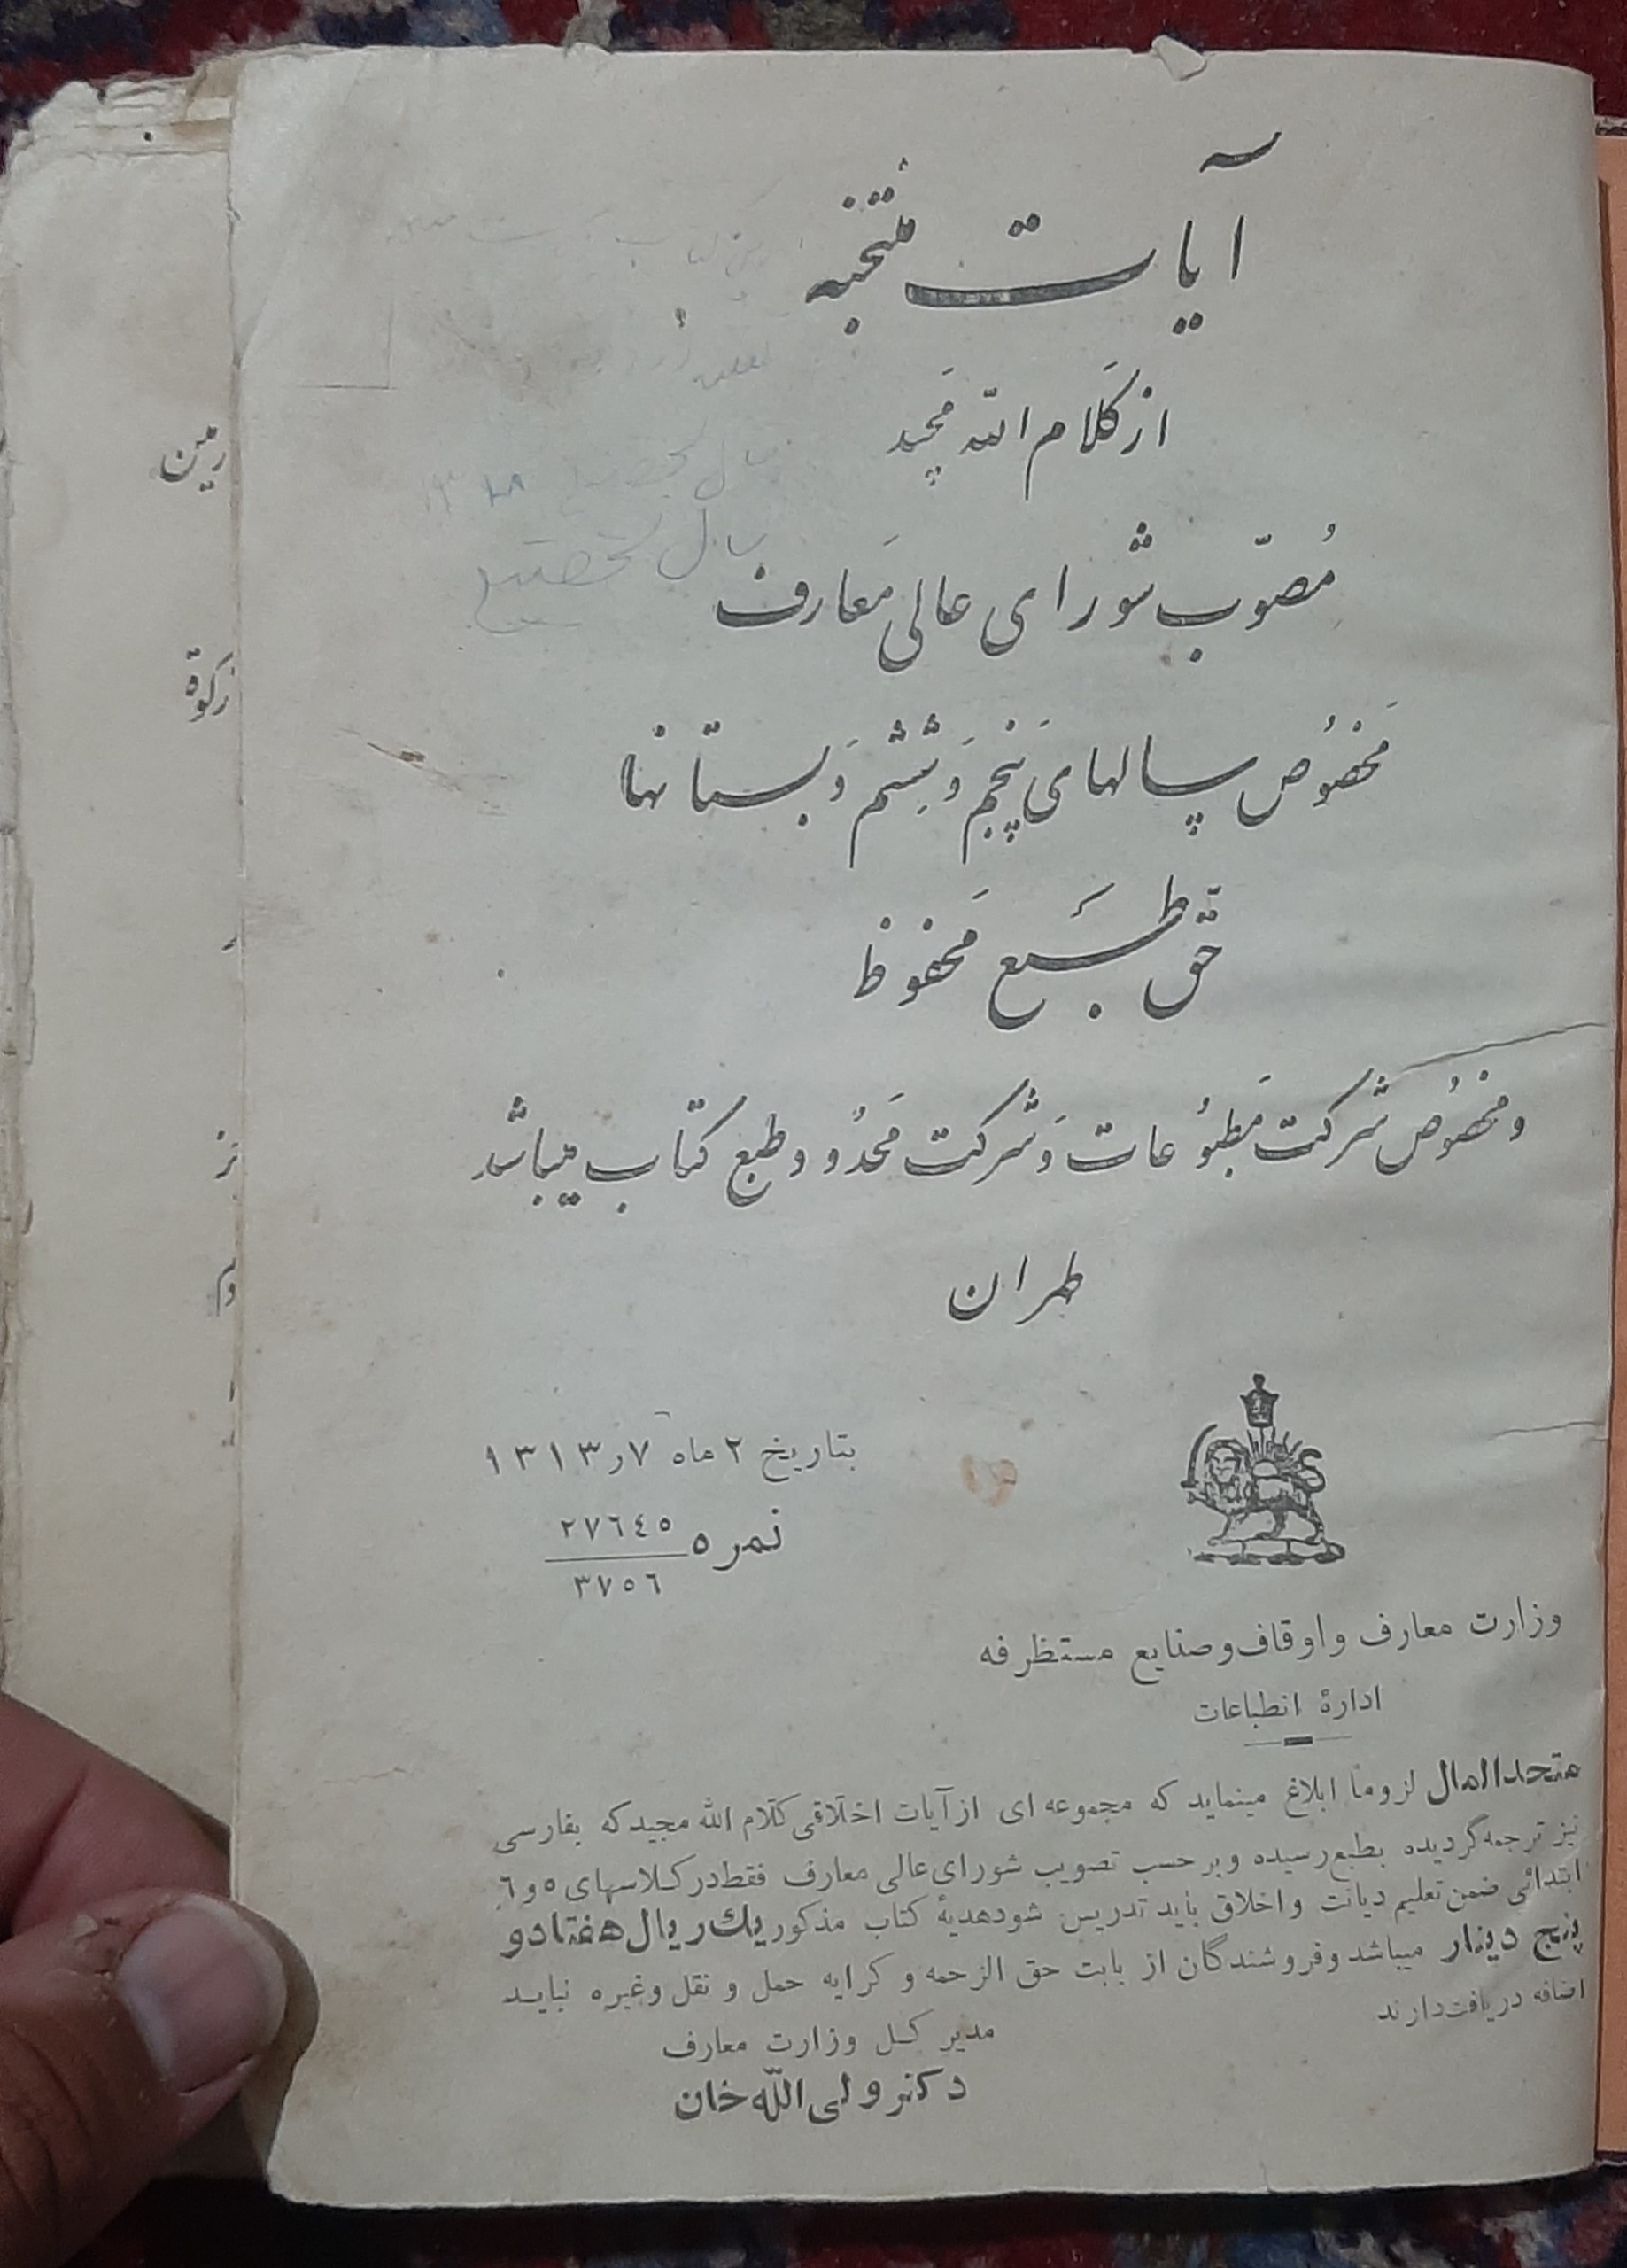 آیات منتخبه
از کلام الله مجید
مُصوّب شورای عالی مَعارف
مَخصُوص سالهای پَنجم وَ ششم دَبستانها
حقّ طَبع مَحفوظ
و مخصُوص شرکت مَطبُوعات وَ شرکت مَحدُود طبع کتاب میباشد
طهران
بتاریخ ۲ ماه ۷ ر ۱۳۱۳
نمره ۲۷٦٤٥
۳۷٥٦
وزارت معارف و اوقاف و صنایع مستظرفه
ادارۀ انطباعات
متحدالمال لزوماً ابلاغ مینماید که مجموعه ای از آیات اخلاقی کلام الله مجید که بفارسی
نیز ترجمه گردیده بطبع رسیده و بر حسب تصویب شورای عالی معارف فقط در کلاسهای ٥ و ٦
ابتدائی ضمن تعلیم دیانت و اخلاق باید تدریس شود هدیۀ کتاب مذکور یك ریال هفتاد و
پنج دینار میباشد و فروشندگان از بابت حق الزحمه و کرایه حمل و نقل و غیره نباید
اضافه دریافت دارند
مدیر کل وزارت معارف
دکتر ولی الله خان
رمین
زکوة
سال تحصیلی ۱۳۱۸
سال تحصیلی